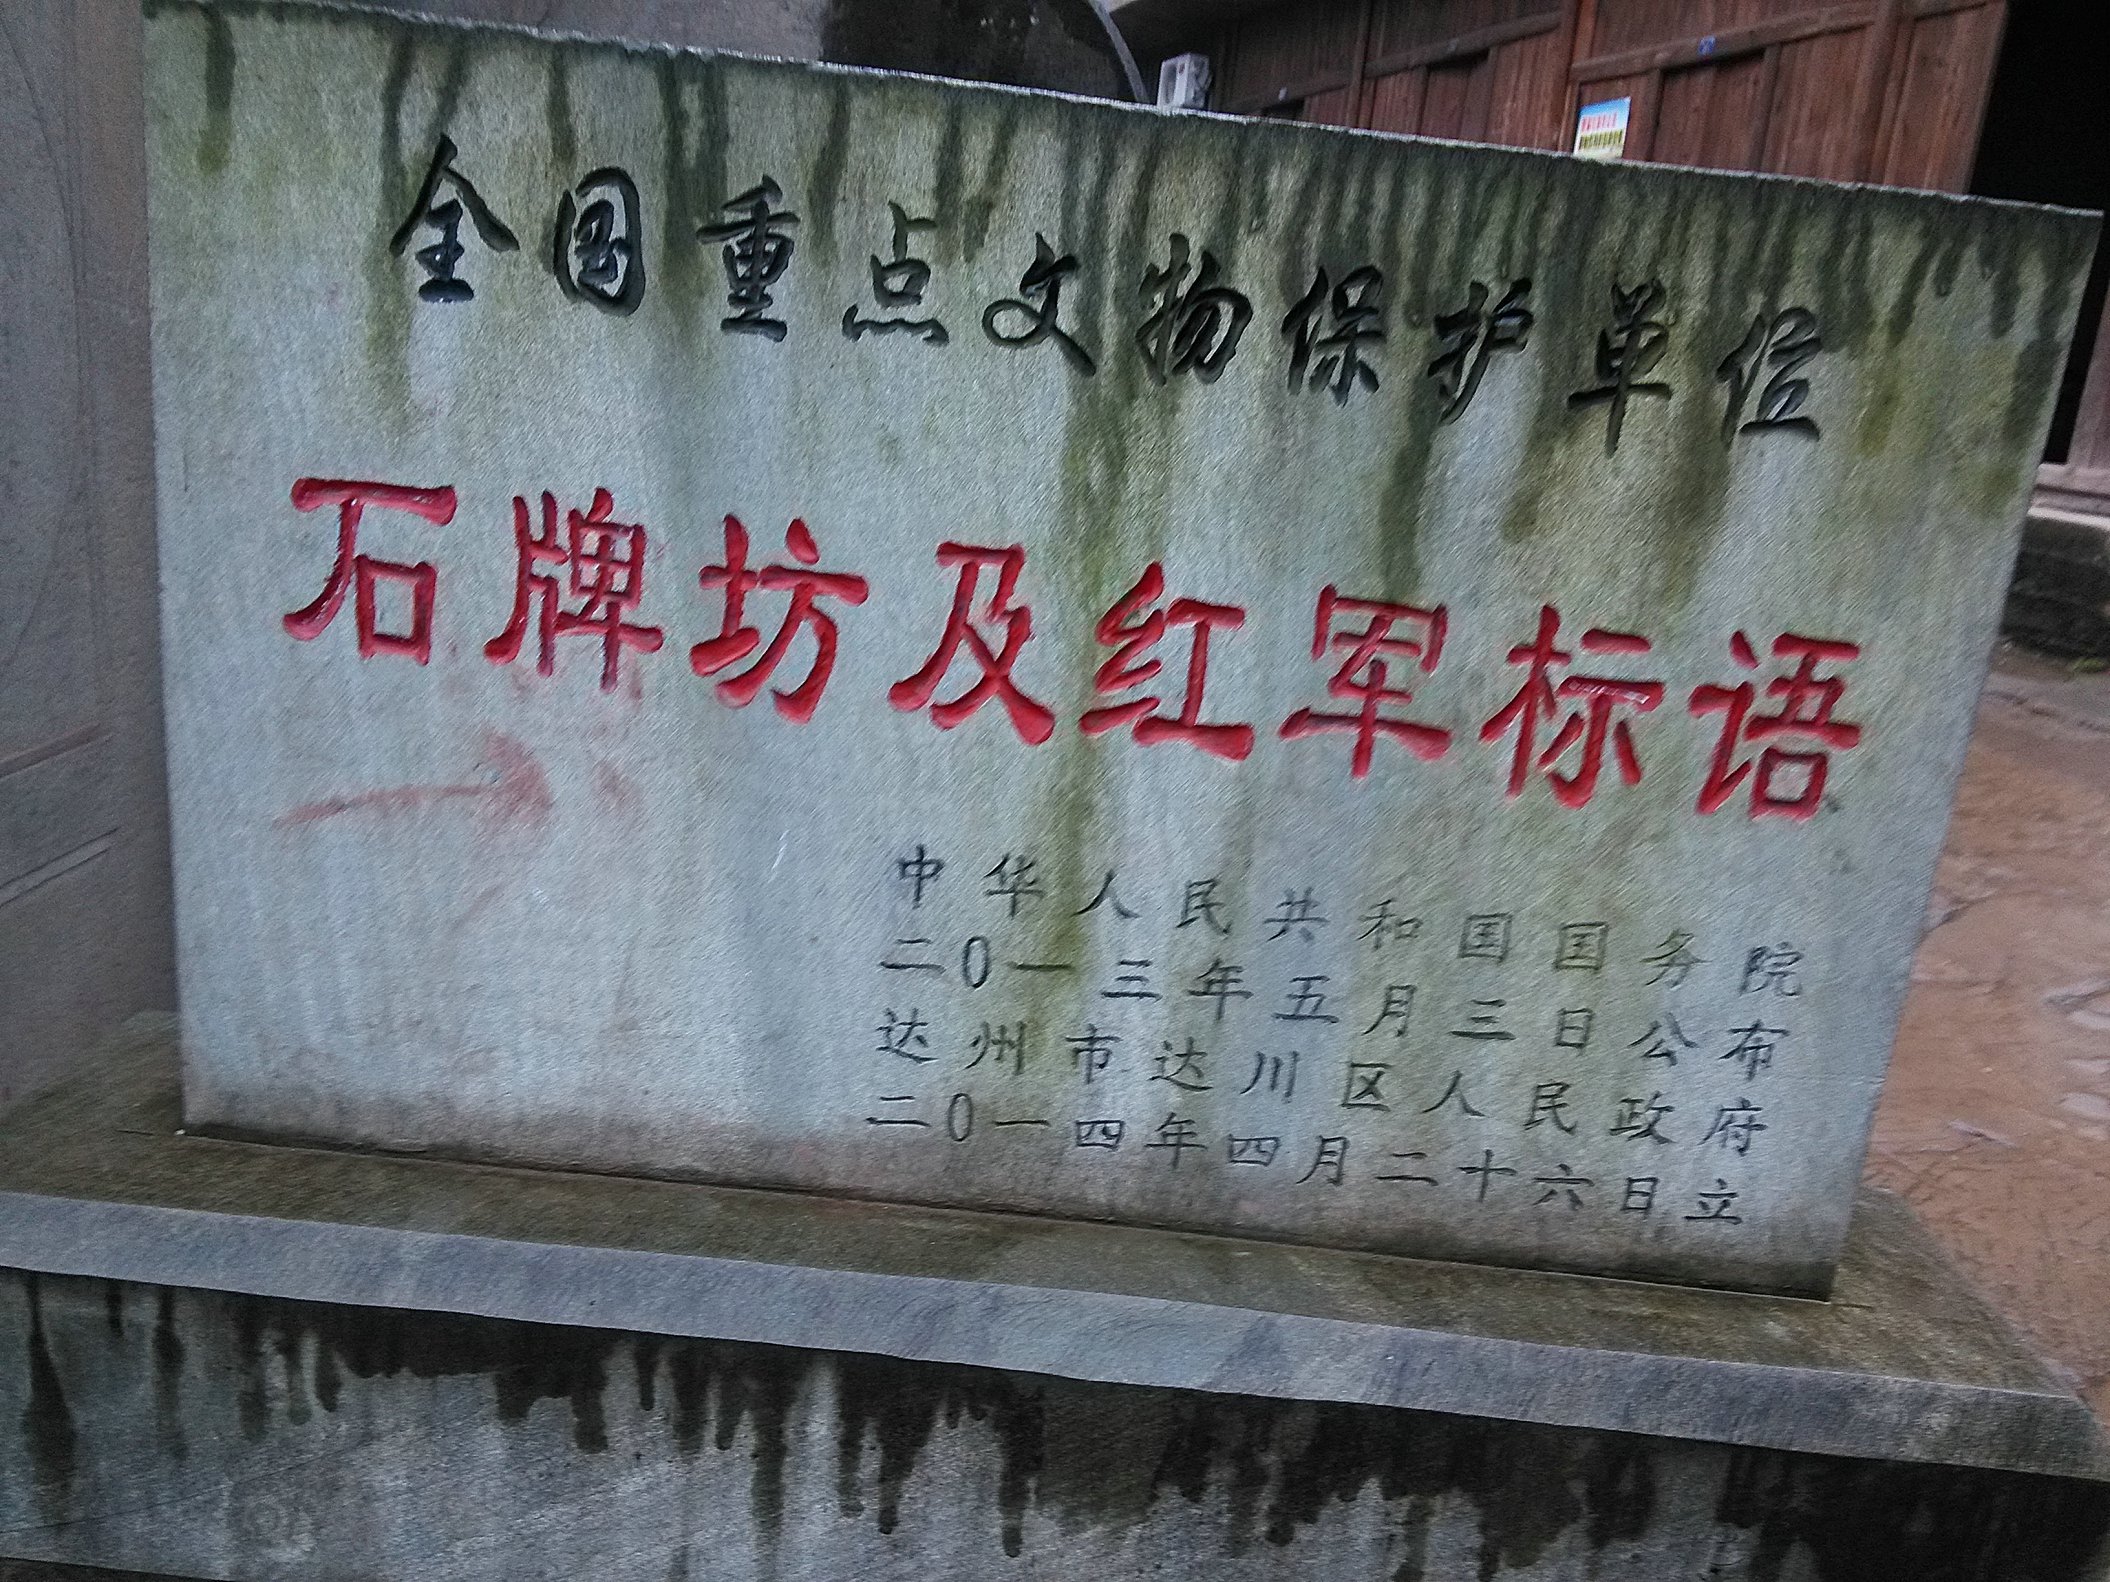 全国重点文物保护单位
石牌坊及红军标语
中华人民共和国国务院
二0一三年五月三日公布
达州市达川区人民政府
二0一四年四月二十六日立